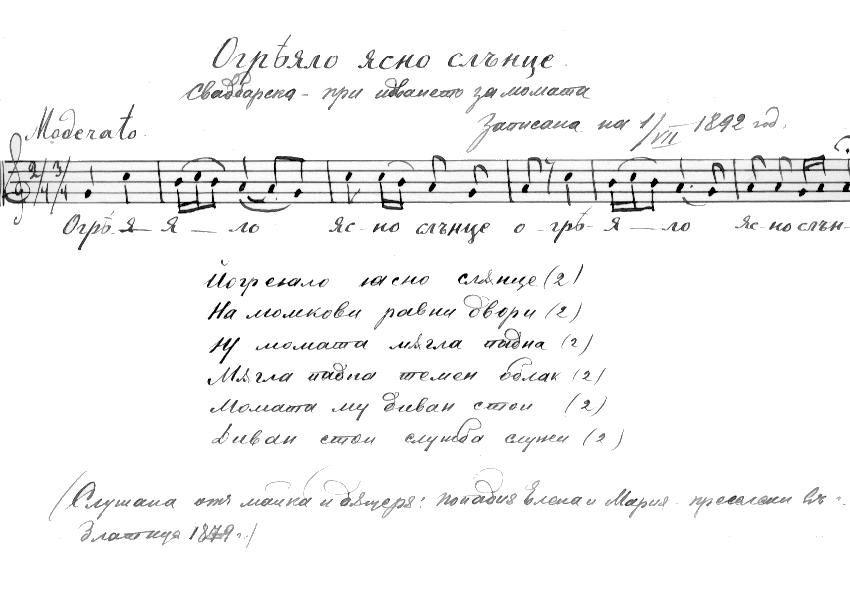 Огрѣяло ясно слънце.
Свадбарска - при идването за момата
Moderato.
Записана на 1/VII 1892 год.
2/4 3/4
Огрѣ- я — я — ло яс-но слънце о-грѣ-я — ло яс-но слън-
Йогреяло ясно слянце (2)
На момкови равни двори (2)
Ну момата мягла падна (2)
Мягла падна темен облак (2)
Момата му диван стои (2)
Диван стои служба служи (2)
(Слушана отъ майка и дящеря: попадия Елена и Мария преселени въ
Златица 1879 г.)